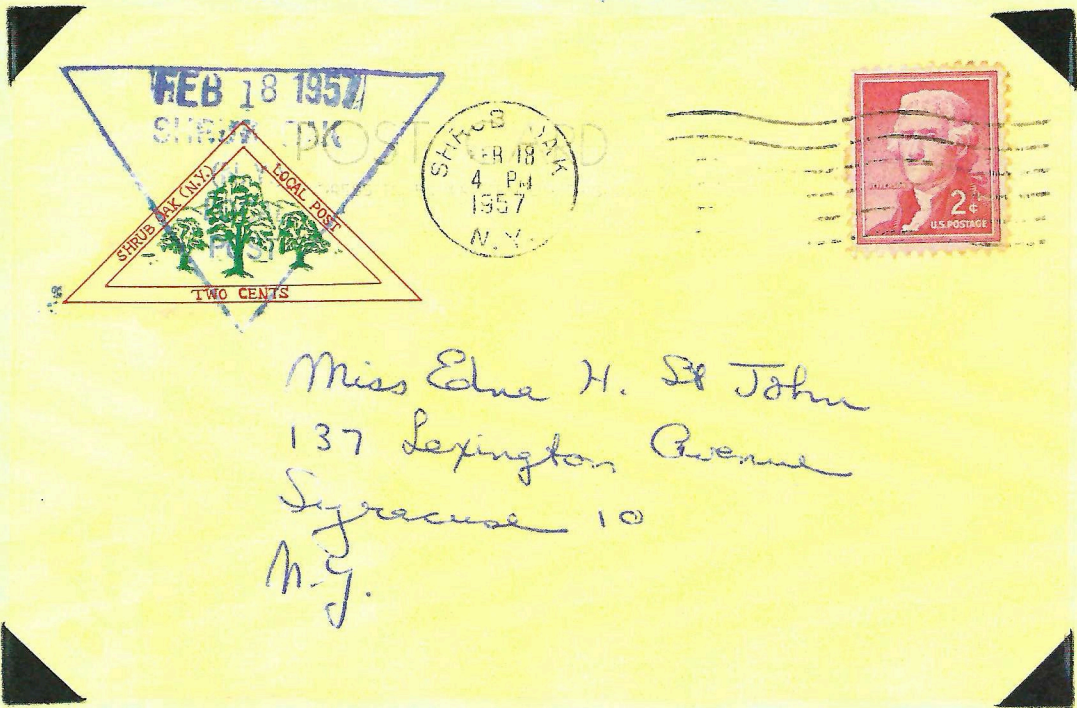 FEB 18 1957
SHRUB OAK
N.Y.
POST
SHRUB OAK (N.Y.)
LOCAL POST
TWO CENTS
POST CARD
SHRUB OAK
FEB 18
4 PM
1957
N.Y.
2¢
U.S. POSTAGE
Miss Edna H. St John
137 Lexington Avenue
Syracuse 10
N.Y.